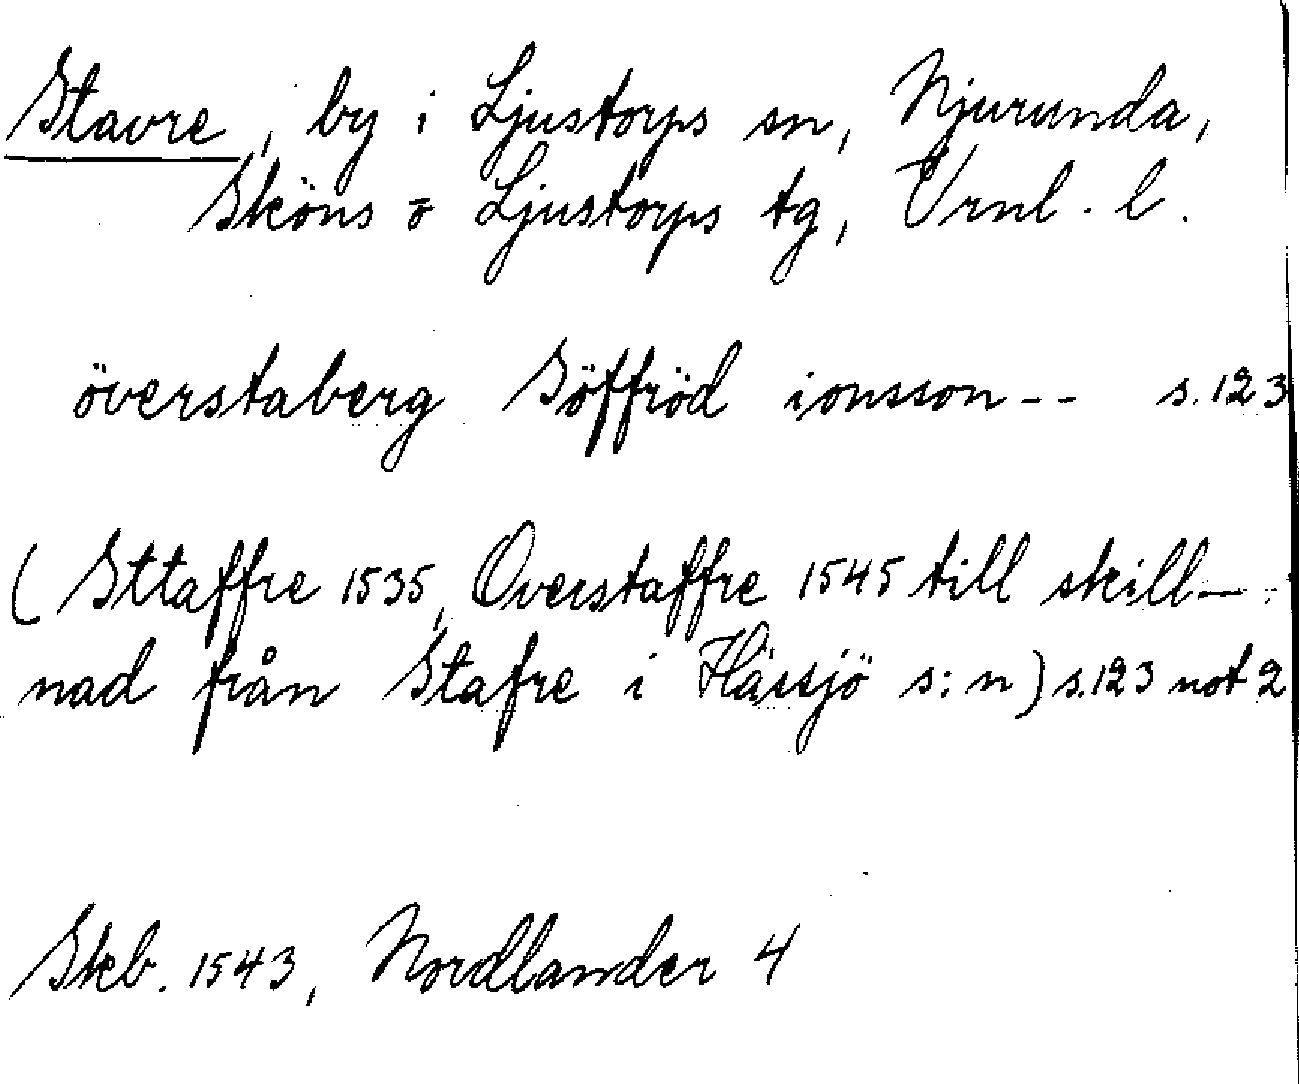 Stavre, by i Ljustorps sn, Njurunda,
Sköns o Ljustorps tg, Vrnl. l.
överstaberg Söffröd ionsson-- s. 123
(Sttaffre 1535, Overstaffre 1545 till skill-
nad från Stafre i Hässjö s:n) s. 123 not 2
Skb. 1543, Nordlander 4